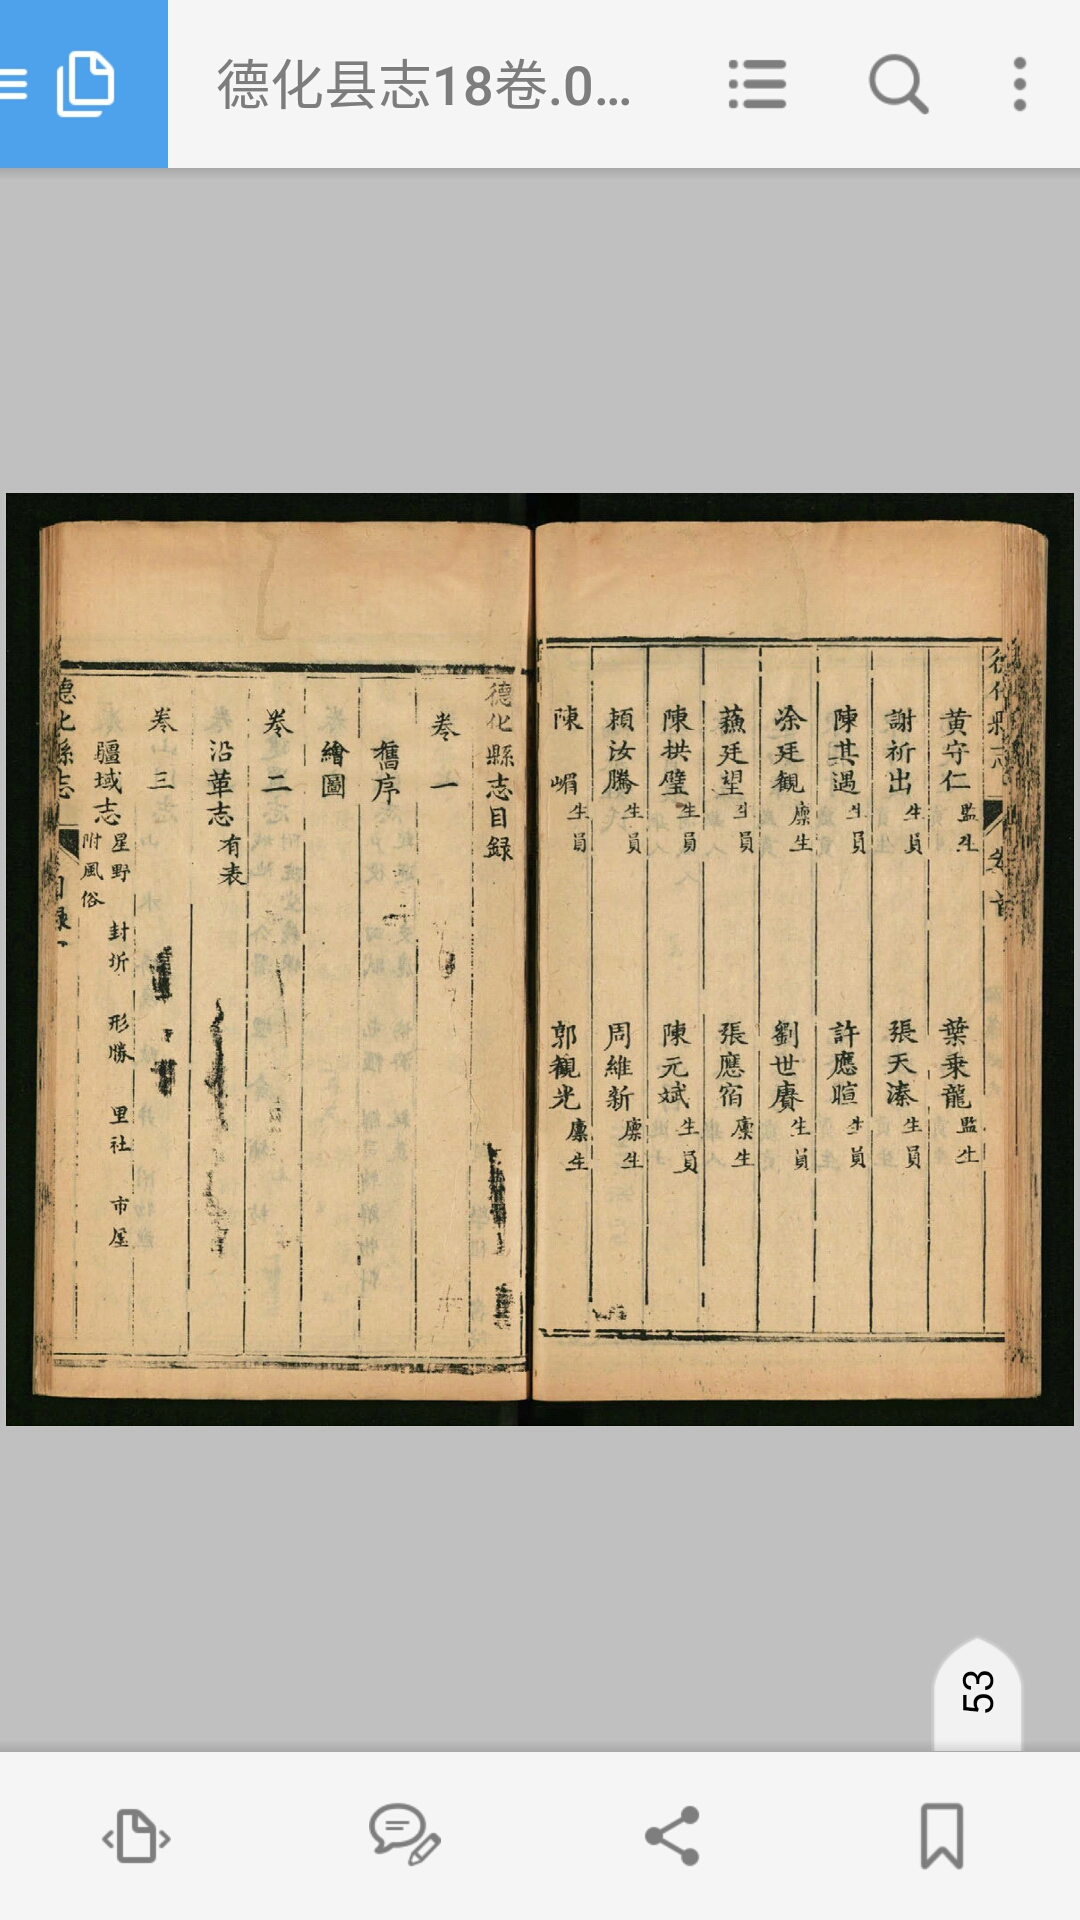 德化县志18卷.0...
德化縣志
卷首
黃守仁 監生 葉秉龍 監生
謝祈出 生員 張天溱 生員
陳其遇 生員 許應暄 生員
凃廷觀 廩生 劉世賡 生員
蘓廷望 生員 張應宿 廩生
陳拱璧 生員 陳元斌 生員
賴汝騰 生員 周維新 廩生
陳嵋 生員 郭觀光 廩生
德化縣志目録
卷一
舊序
繪圖
卷二
沿革志 有表
卷三
疆域志 星野 封圻 形勝 里社 市廛
附風俗
德化縣志
目録一
53